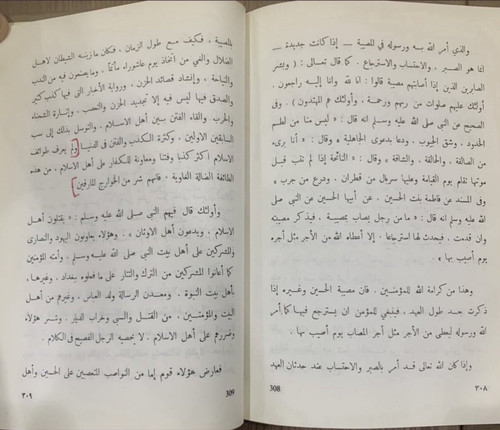 والذي أمر الله به ورسوله في المصيبة — إذا كانت جديدة —
انما هو الصبر ، والاحتساب والاسترجاع . كما قال تعالى : ( وبشر
الصابرين الذين إذا أصابتهم مصيبة قالوا : انا لله وانا إليه راجعون .
أولئك عليهم صلوات من ربهم ورحمة ، وأولئك هم المهتدون ) . وفى
الصحيح عن النبي صلى الله عليه وسلم انه قال : « ليس منا من لطم
الخدود ، وشق الجيوب ، ودعا بدعوى الجاهلية » وقال : « أنا بريء
من الصالقة ، والحالقة ، والشاقة » وقال : « النائحة إذا لم تتب قبل
موتها تقام يوم القيامة وعليها سربال من قطران ، ودرع من جرب »
وفى المسند عن فاطمة بنت الحسين ، عن أبيها الحسين عن النبي صلى
الله عليه وسلم انه قال : « ما من رجل يصاب بمصيبة ، فيذكر مصيبته
وان قدمت ، فيحدث لها استرجاعا . إلا أعطاه الله من الأجر مثل أجره
يوم أصيب بها » .
وهذا من كرامة الله للمؤمنين . فان مصيبة الحسين وغيره إذا
ذكرت بعد طول العهد ، فينبغي للمؤمن ان يسترجع فيها كما أمر
الله ورسوله ليعطى من الأجر مثل أجر المصاب يوم أصيب بها .
وإذا كان الله تعالى قد أمر بالصبر والاحتساب عند حدثان العهد
308
٣٠٨
بالمصيبة ، فكيف مع طول الزمان ، فكان ما زينه الشيطان لاهل
الضلال والغي من اتخاذ يوم عاشوراء مأتماً ، وما يصنعون فيه من الندب
والنياحة ، وإنشاد قصائد الحزن ، ورواية الأخبار التى فيها كذب كثير
والصدق فيها ليس فيه إلا تجديد الحزن والتعصب ، وإثارة الشحناء
والحرب ، وإلقاء الفتن بين أهل الاسلام . والتوسل بذلك إلى سب
السابقين الاولين . وكثرة الكذب والفتن في الدنيا ولم يعرف طوائف
الاسلام أكثر كذبا وفتنا ومعاونة للكفار على أهل الاسلام ، من هذه
الطائفة الضالة الغاوية . فانهم شر من الخوارج المارقين
وأولئك قال فيهم النبي صلى الله عليه وسلم : « يقتلون أهل
الاسلام ، ويدعون أهل الأوثان » . وهؤلاء يعاونون اليهود والنصارى
والمشركين على أهل بيت النبي صلى الله عليه وسلم ، وأمته المؤمنين
كما أعانوا المشركين من الترك والتتار على ما فعلوه ببغداد . وغيرها .
بأهل بيت النبوة ، ومعدن الرسالة ولد العباس ، وغيرهم من أهل
البيت والمؤمنين ، من القتل والسبى وخراب الديار . وشر هؤلاء
وضررهم على أهل الاسلام . لا يحصيه الرجل الفصيح في الكلام .
فعارض هؤلاء قوم إما من النواصب المتعصبين على الحسين وأهل
309
٣٠٩